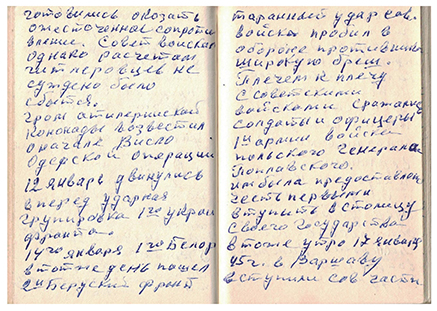 готовились оказать
ожесточенное сопроти
вление. Совет войскам
однако расчетам
гитлеровцев не
суждено было
сбытся.
гром артилерийской
кононады возвестил
о начале Висло
Одерской операции
12 январь двинулись
вперед ударная
групировка 1го украи
фронта.
14го января 1го Белор
в тот же день пошел
2й Беруский фронт
таранный удар сов.
войска пробил в
обороне противника
широкую бреш.
Плечем к плечу
с советскими
войсками сражались
солдаты и офицеры
1й армии войска
польского Генерала
Поплавского.
им была предоставлена
честь первыми
вступить в столицу
своего Государства
в тоже утро 17 января
45г. в Варшаву
вступили сов части